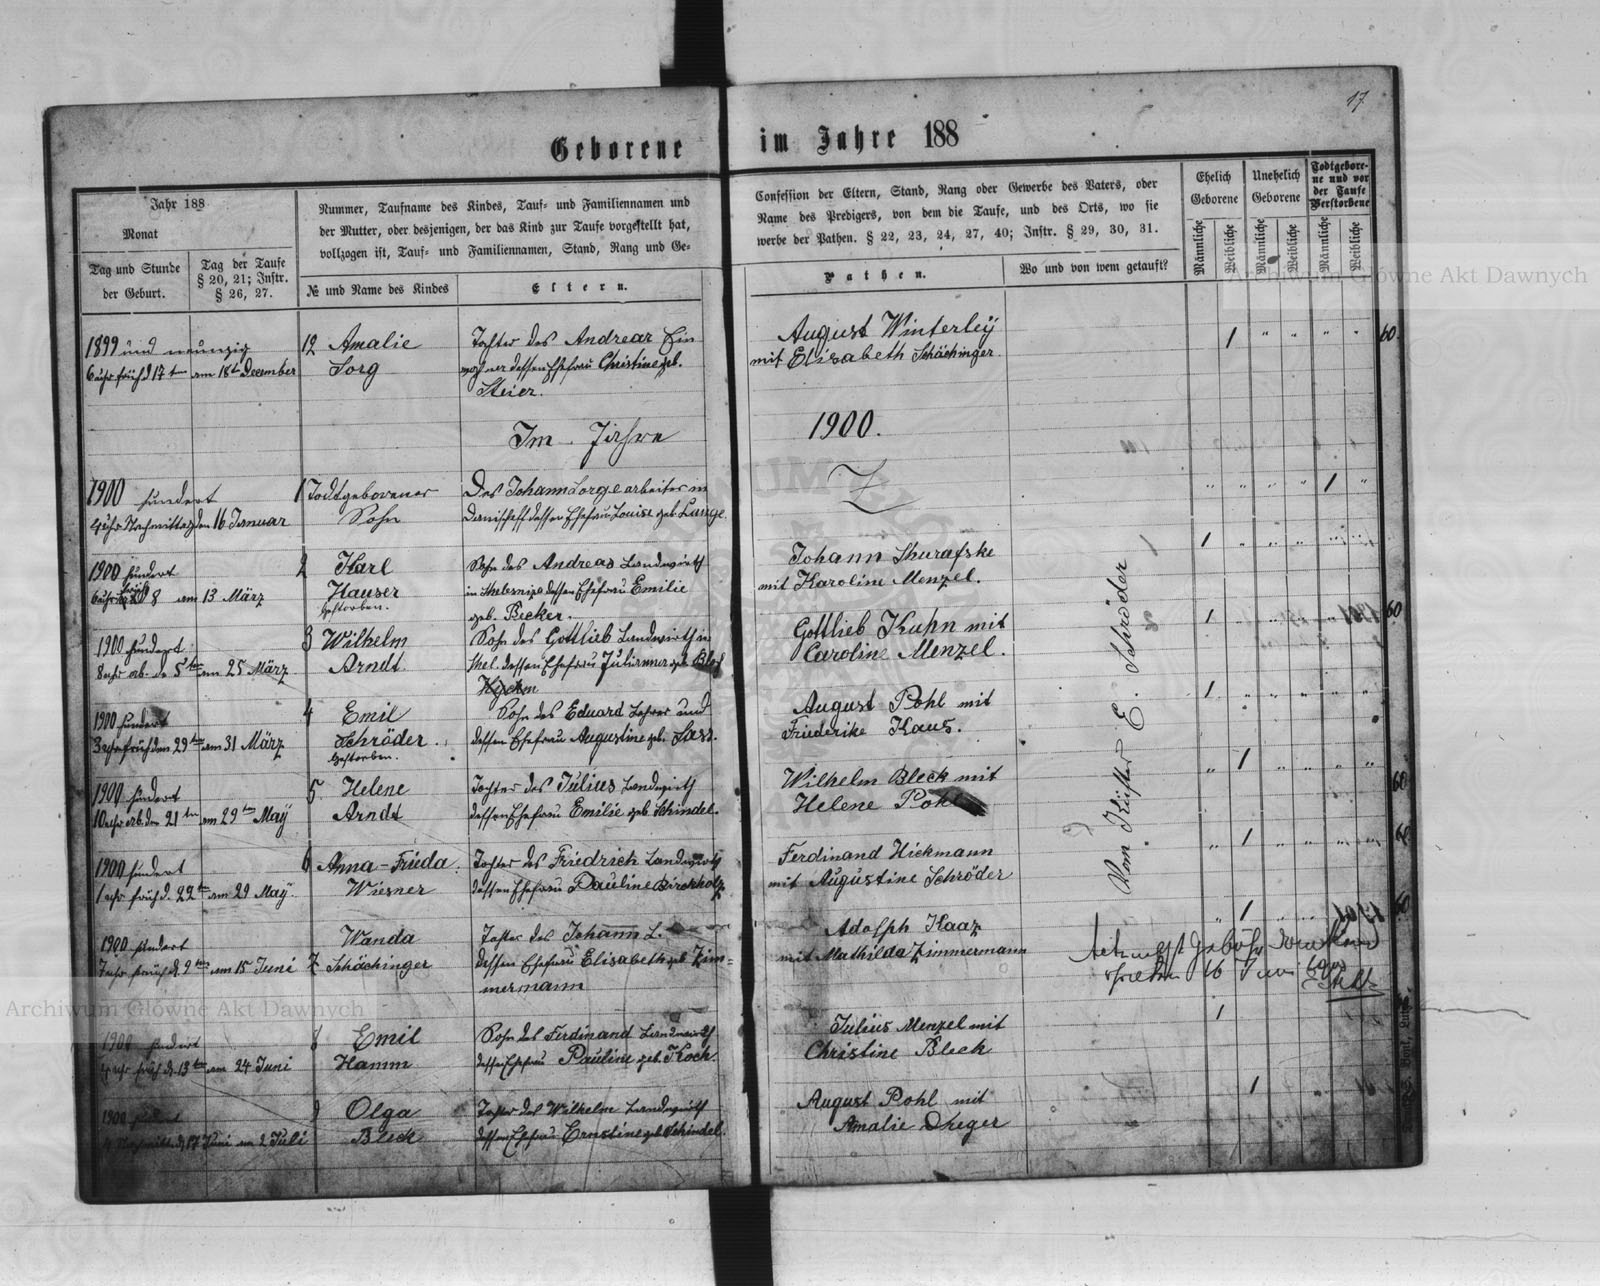 17
Geborene im Jahre 188
Jahr 188
Monat
Tag und Stunde der Geburt.
Tag der Taufe § 20, 21; Instr. § 26, 27.
Nummer, Taufname des Kindes, Tauf- und Familiennamen und
der Mutter, oder desjenigen, der das Kind zur Taufe vorgestellt hat,
vollzogen ist, Tauf- und Familiennamen, Stand, Rang und Ge-
№ und Name des Kindes
Eltern.
Confession der Eltern, Stand, Rang oder Gewerbe des Vaters, oder
Name des Predigers, von dem die Taufe, und des Orts, wo sie
werbe der Pathen. § 22, 23, 24, 27, 40; Instr. § 29, 30, 31.
Pathen.
Wo und von wem getauft?
Ehelich Geborene
Unehelich Geborene
Todtgebore-
ne und vor
der Taufe
Verstorbene
Männliche
Weibliche
Männliche
Weibliche
Männliche
Weibliche
1899 und neunzig
6 uhr früh d 17ten am 18ten December
12 Amalie
Sorg
Tochter des Andreas Ein
wohner dessen Ehefrau Christine geb.
Steier.
August Winterley
mit Elisabeth Schächinger
1
60
Im Jahre 1900.
1900 hundert
4 uhr Nachmittag den 16 Januar
1 Todtgeborener
Sohn
Des Johann Sorge arbeiter in
dessen Ehefrau Louise geb. Lange
1
1900 hundert
6 uhr früh d 8 am 13 März
2 Karl
Hauser
Gestorben.
Sohn des Andreas Landwirth
in dessen Ehefrau Emilie
geb. Becker.
Johann
mit Karoline Menzel.
1
1900 hundert
8 uhr ab. d 5ten am 25 März
3 Wilhelm
Arndt
Sohn des Gottlieb Landwirth in
dessen Ehefrau Julianna geb.
Gottlieb Kuhn mit
Caroline Menzel.
1
60
1900 hundert
3 uhr früh den 29ten am 31 März
4 Emil
Schröder
Gestorben.
Sohn des Eduard Lehrer und
dessen Ehefrau Augustine geb. Sass.
August Pohl mit
Friederike Kaus.
1
1900 hundert
10 uhr ab. den 21ten am 29ten May
5 Helene
Arndt
Tochter des Julius Landwirth
dessen Ehefrau Emilie geb. Schindel.
Wilhelm Bleck mit
Helene Pohl
1
60
1900 hundert
1 uhr früh d. 22ten am 29 May
6 Anna-Frieda
Wiesner
Tochter des Friedrich Landwirth
dessen Ehefrau Pauline Birckholz
Ferdinand Hickmann
mit Augustine Schröder
1
60
1900 hundert
7 uhr früh d. 9ten am 15 Juni
7 Wanda
Schächinger
Tochter des Johann L.
dessen Ehefrau Elisabeth geb. Zim-
mermann
Adolph Kaaz
mit Mathilda Zimmermann
1
60
Vom Küster E. Schröder
1900 hundert
4 uhr früh d. 13ten am 24 Juni
8 Emil
Hamm
Sohn des Ferdinand Landwirth
dessen Ehefrau Pauline geb. Koch
Julius Menzel mit
Christine Bleck
1
1900 hundert
4 Nachmitt. d. 17 Juni am 2 Juli
9 Olga
Bleck
Tochter des Wilhelm Landwirth
dessen Ehefrau Ernstine geb. Schindel.
August Pohl mit
Amalie Dreger
1
Archiwum Główne Akt Dawnych
Archiwum Główne Akt Dawnych